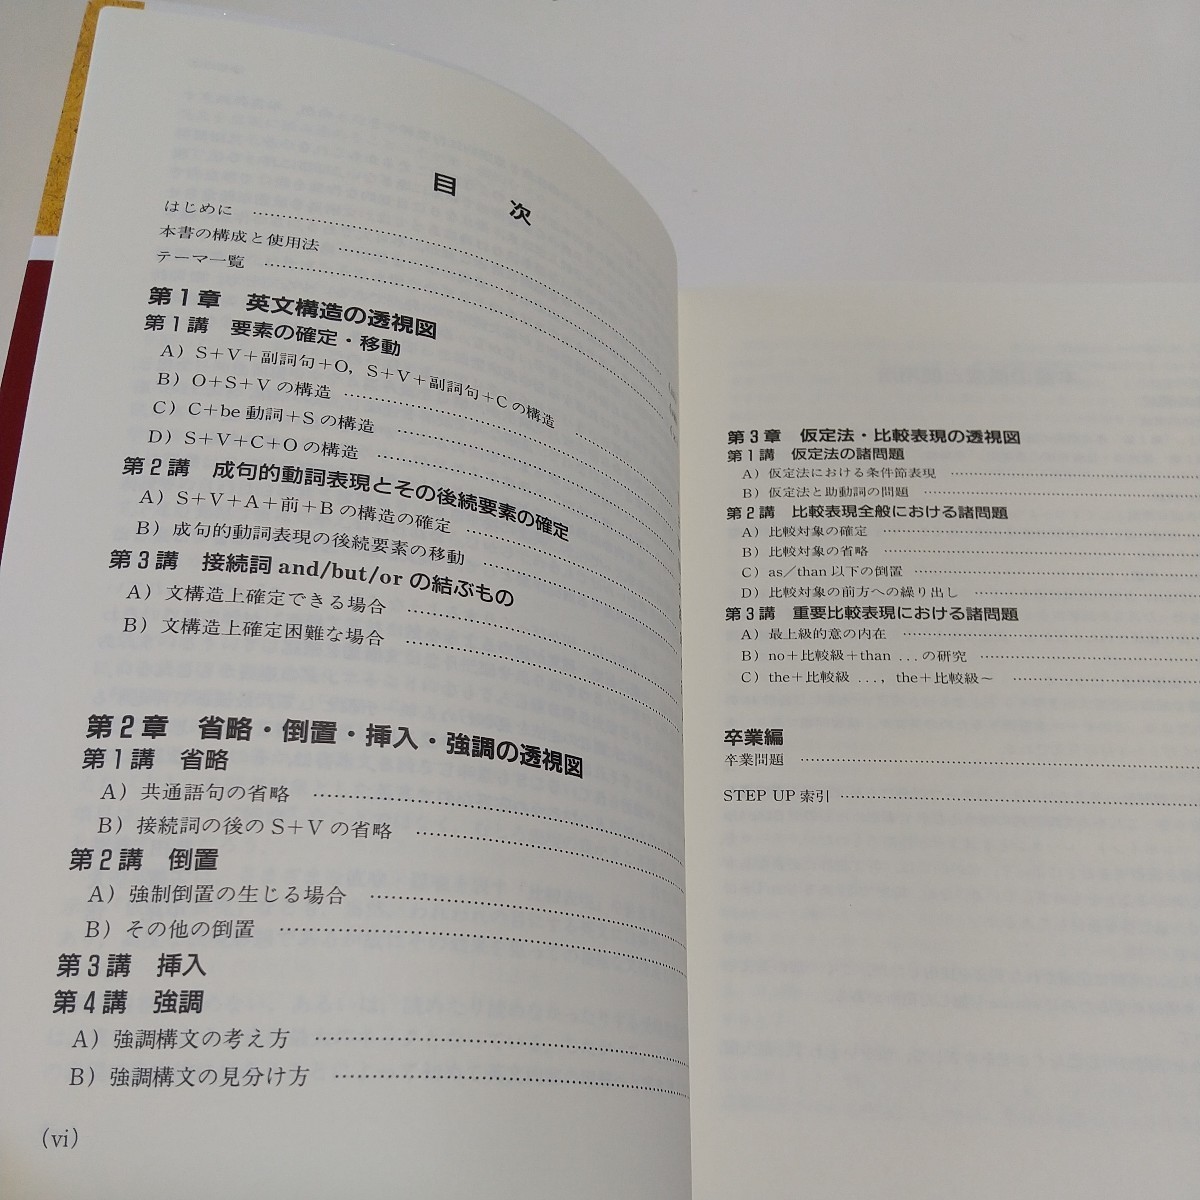 目 次
はじめに
本書の構成と使用法
テーマ一覧
第1章 英文構造の透視図
第1講 要素の確定・移動
A）S＋V＋副詞句＋O，S＋V＋副詞句＋C の構造
B）O＋S＋V の構造
C）C＋be 動詞＋S の構造
D）S＋V＋C＋O の構造
第2講 成句的動詞表現とその後続要素の確定
A）S＋V＋A＋前＋B の構造の確定
B）成句的動詞表現の後続要素の移動
第3講 接続詞 and/but/or の結ぶもの
A）文構造上確定できる場合
B）文構造上確定困難な場合
第2章 省略・倒置・挿入・強調の透視図
第1講 省略
A）共通語句の省略
B）接続詞の後の S＋V の省略
第2講 倒置
A）強制倒置の生じる場合
B）その他の倒置
第3講 挿入
第4講 強調
A）強調構文の考え方
B）強調構文の見分け方
（vi）
第3章 仮定法・比較表現の透視図
第1講 仮定法の諸問題
A）仮定法における条件節表現
B）仮定法と助動詞の問題
第2講 比較表現全般における諸問題
A）比較対象の確定
B）比較対象の省略
C）as／than 以下の倒置
D）比較対象の前方への繰り出し
第3講 重要比較表現における諸問題
A）最上級的意の内在
B）no＋比較級＋than ...の研究
C）the＋比較級 ...，the＋比較級～
卒業編
卒業問題
STEP UP 索引